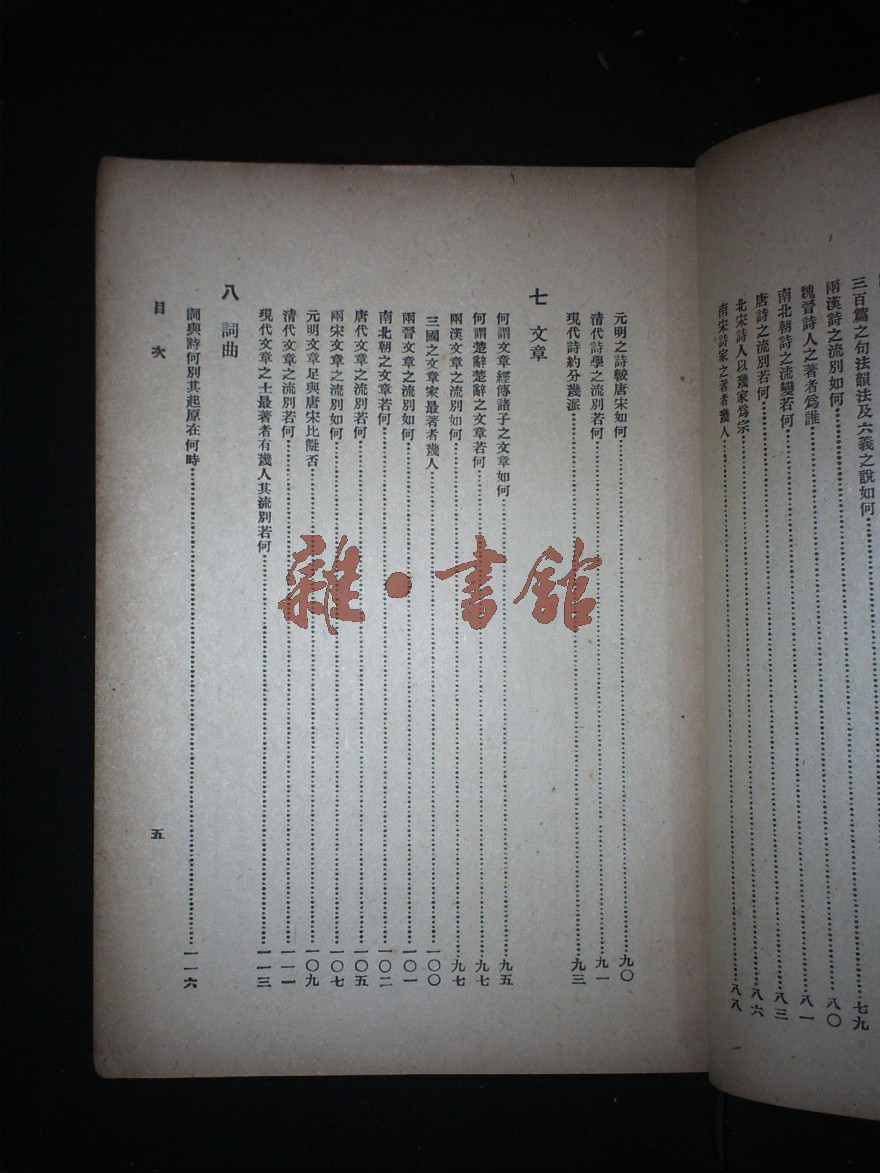 三百篇之句法韻法及六義之說如何⋯⋯七九
兩漢詩之流別如何⋯⋯八〇
魏晉詩人之著者爲誰⋯⋯八一
南北朝詩之流變若何⋯⋯八三
唐詩之流別若何⋯⋯八六
北宋詩人以幾家爲宗⋯⋯八八
南宋詩家之著者幾人
元明之詩較唐宋如何⋯⋯九〇
清代詩學之流別若何⋯⋯九一
現代詩約分幾派⋯⋯九三
七 文章
何謂文章經傳諸子之文章如何⋯⋯九五
何謂楚辭楚辭之文章若何⋯⋯九七
兩漢文章之流別如何⋯⋯九七
三國之文章家最著者幾人⋯⋯一〇〇
兩晉文章之流別如何⋯⋯一〇一
南北朝之文章若何⋯⋯一〇二
唐代文章之流別若何⋯⋯一〇五
兩宋文章之流別如何⋯⋯一〇七
元明文章足與唐宋比儗否⋯⋯一〇九
清代文章之流別若何⋯⋯一一一
現代文章之士最著者有幾人其流別若何⋯⋯一一三
八 詞曲
詞與詩何別其起原在何時⋯⋯一一六
目次
五
雜·書館